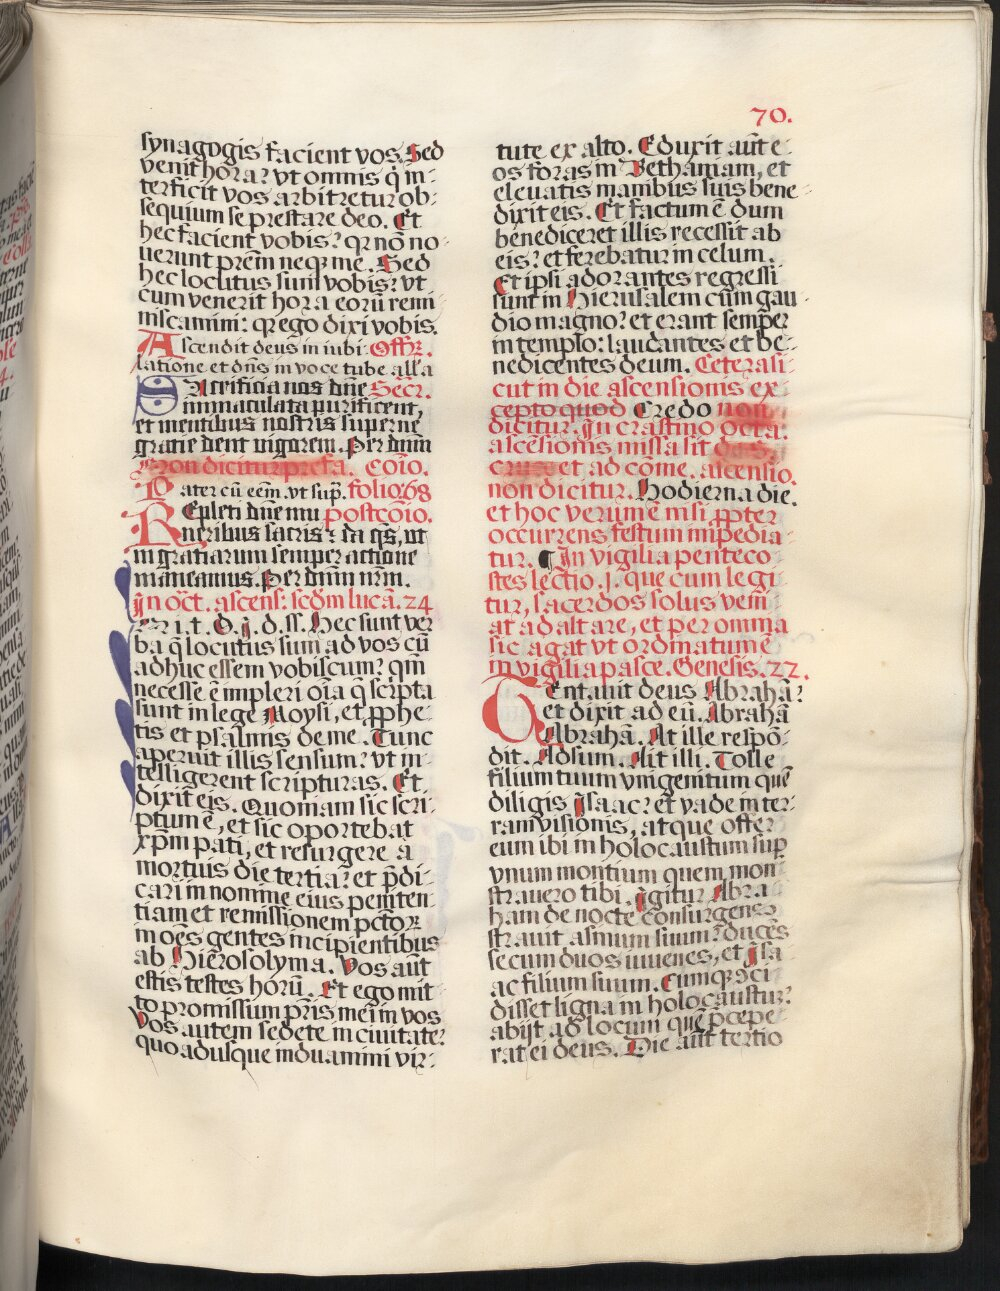 70.
synagogis facient vos. Sed
venit hora: vt omnis q̇ in-
terficit vos arbitretur ob-
sequium se prestare deo. Et
hec facient vobis: qꝛ nō no-
uerunt prēm neqꝫ me. Sed
hec locutus sum vobis: vt
cum venerit hora eorū remi
niscamini: qꝛ ego dixi vobis.
Ascendit deus in iubi- Offꝛ.
latione et dn̄s in voce tube. all'a
Sacrificia nos dn̄e Secr.
immaculata purificent,
et mentibus nostris superne
gratie dent uigorem. Per dnm̄
Non dicitur prefa. Coīo.
Pater cū eēm. vt sup̄. folio. 68
Repleti dn̄e mu postcōio.
neribus sacris: da q̄s, ut
in gratiarum semper actione
maneamus. Per dnm̄ nrm̄.
In oct. ascens. scd̄m lucā. 24
In i. t. d. J. d. ss. Hec sunt ver
ba q̄ locutus sum ad vos cū
adhuc essem vobiscum: qm̄
necesse ē impleri oīa q̄ scripta
sunt in lege Moysi, et ꝓphe-
tis et psalmis de me. Tunc
aperuit illis sensum: vt in-
telligerent scripturas. Et
dixit eis. Quoniam sic scri-
ptum ē, et sic oportebat
xp̄m pati, et resurgere a
mortuis die tertia: et p̄di-
cari in nomine eius peniten-
tiam et remissionem pctōꝝ
in oēs gentes incipientibus
ab Hierosolyma. Vos aūt
estis testes horū. Et ego mit-
to promissum pr̄is mei in vos
Vos autem sedete in ciuitate:
quoadusque induamini vir-
tute ex alto. Eduxit aūt e-
os foras in Bethaniam, et
eleuatis manibus suis bene-
dixit eis. Et factum ē dum
benediceret illis recessit ab
eis: et ferebatur in celum.
Et ipsi adorantes regressi
sunt in Hierusalem cum gau-
dio magno: et erant semper
in templo: laudantes et be-
nedicentes deum. Cetera si-
cut in die ascensionis ex-
cepto quod Credo non
dicitur. In crastino octa.
ascēsionis missa sit de s.
cruce et ad cōme. ascensio.
non dicitur. Hodierna die.
et hoc verum ē nisi ꝓpter
occurrens festum impedia-
tur. In vigilia penteco
stes lectio. j. que cum legi
tur, sacerdos solus veni
at ad altare, et per omnia
sic agat vt ordinatum ē
in vigilia pasce. Genesis. 22.
Tentauit deus Abrahā:
et dixit ad eū. Abrahā
Abrahā. At ille respō-
dit. Adsum. Ait illi. Tolle
filium tuum vnigenitum quē
diligis Isaac: et vade in ter-
ram visionis, atque offer
eum ibi in holocaustum sup̄
vnum montium quem mon
strauero tibi. Igitur Abra-
ham de nocte consurgens
strauit asinum suum: ducēs
secum duos iuuenes, et Isa
ac filium suum. Cumqꝫ ꝯci-
disset ligna in holocaustu:
abijt ad locum quē p̄cepe-
rat ei deus. Die aūt tertio